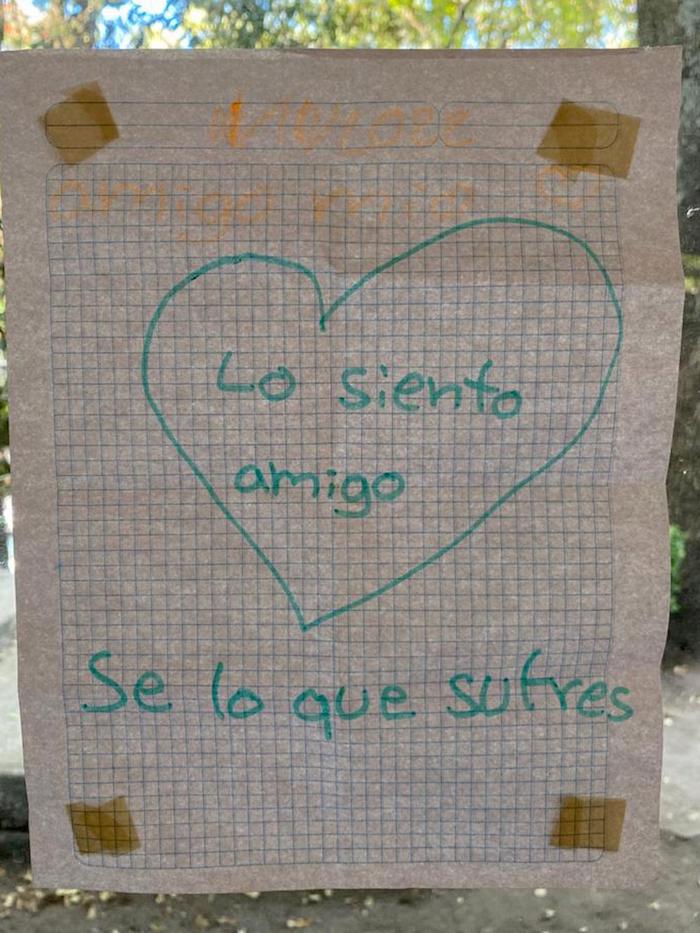 amigo mio
Lo siento
amigo
Se lo que sufres